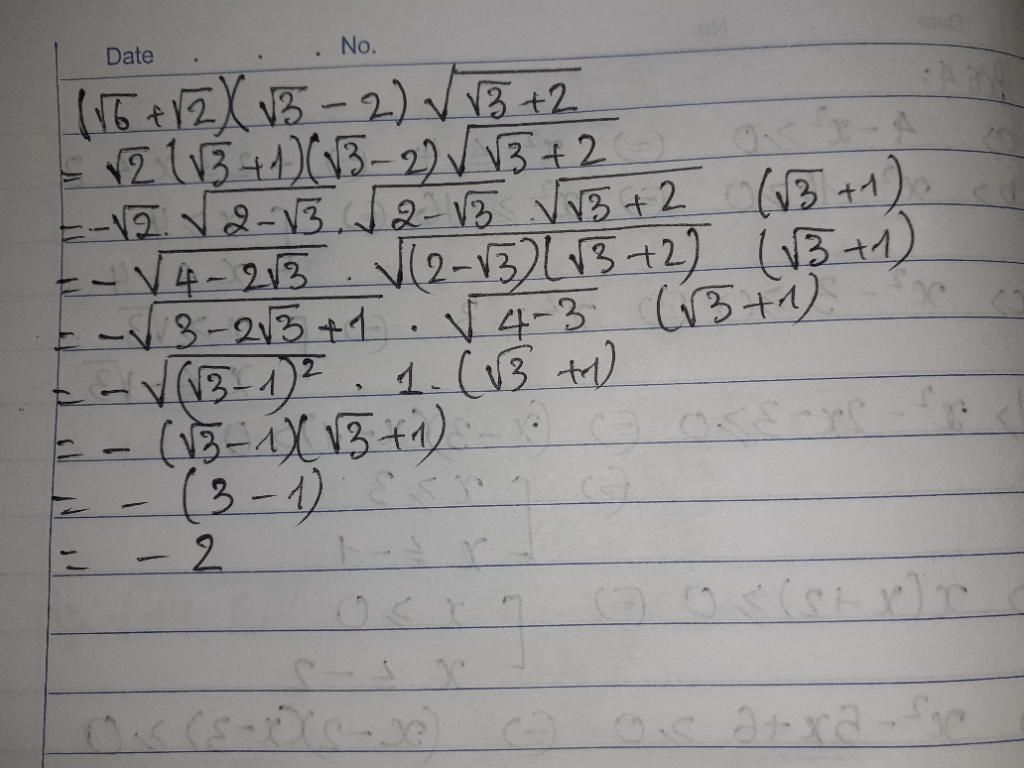 Date . . . No.
(√6 + √2)(√3 - 2) √(√3 + 2)
= √2 (√3 + 1)(√3 - 2) √(√3 + 2)
= -√2 . √(2 - √3) . √(2 - √3) . √(√3 + 2) (√3 + 1)
= - √(4 - 2√3) . √((2 - √3)(√3 + 2)) (√3 + 1)
= - √(3 - 2√3 + 1) . √(4 - 3) (√3 + 1)
= - √((√3 - 1)²) . 1 . (√3 + 1)
= - (√3 - 1)(√3 + 1)
= - (3 - 1)
= - 2